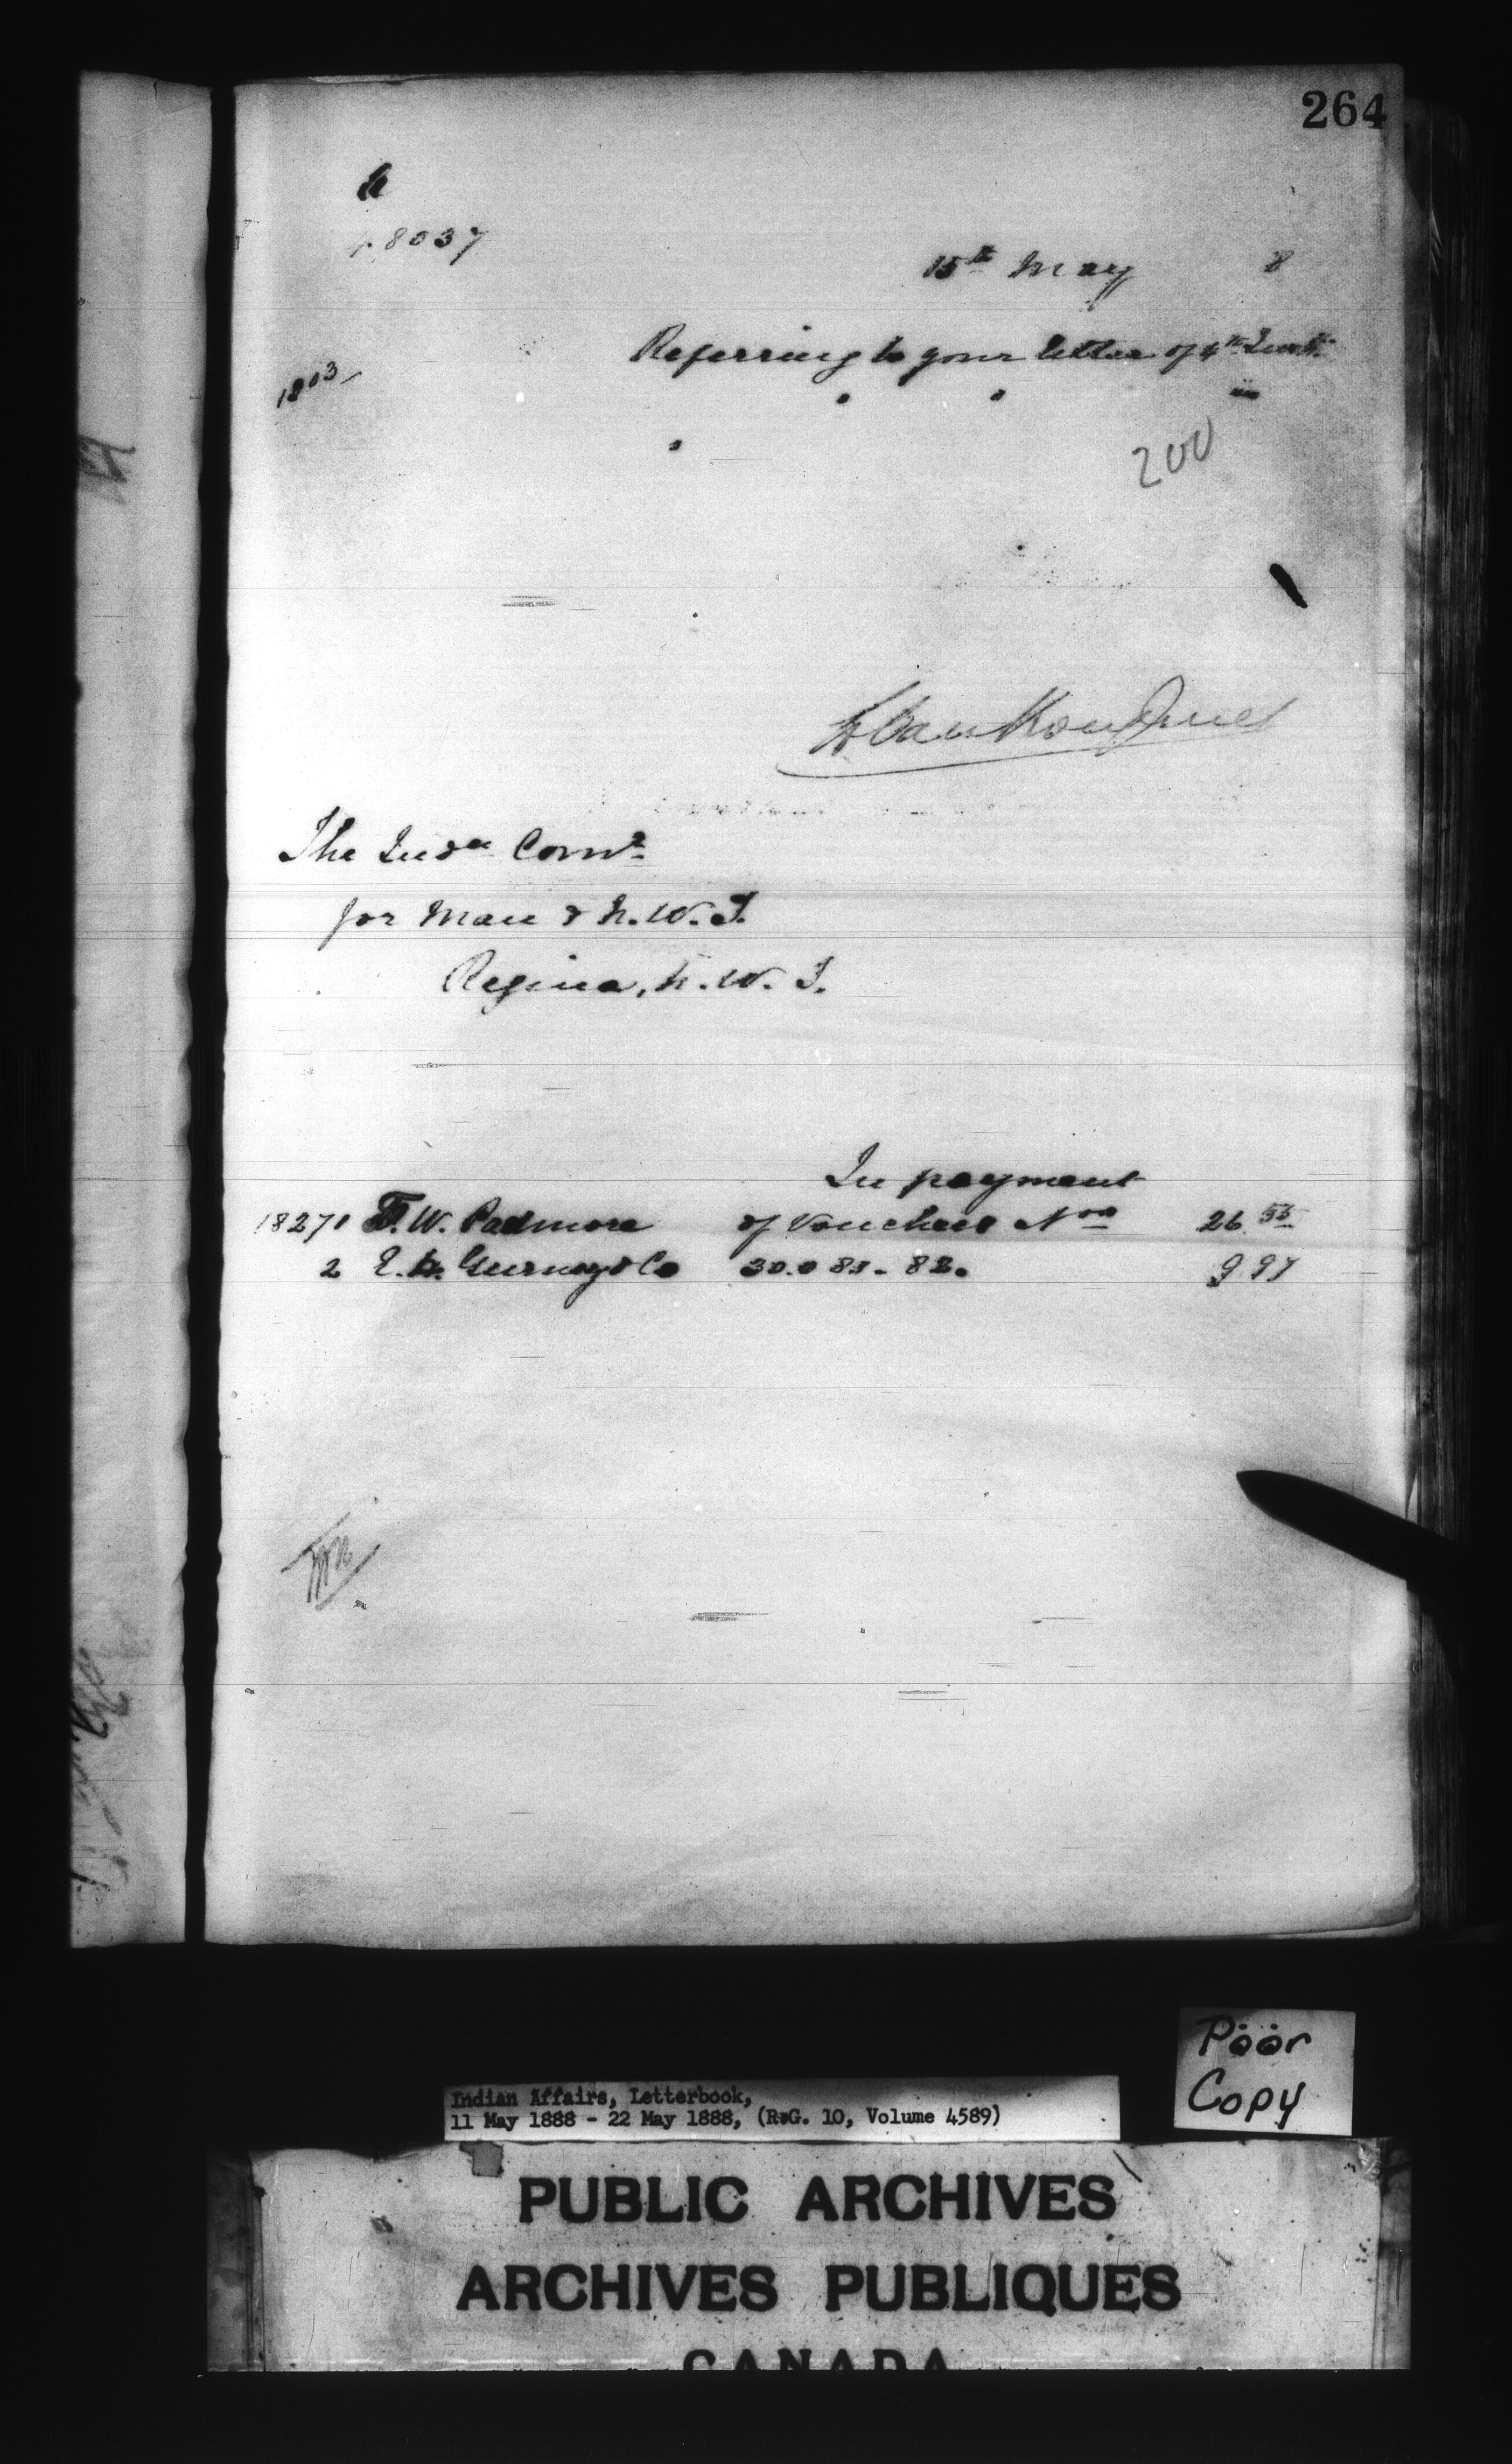 264
h
48037
15th May 8
Referring to your letter of 4th Inst.
1803
200
L. VanKoughnet
The Indn Comr
for Man & N.W.T.
Regina, N.W.T.
In payment
18271 T.W. Padmore of Vouchers Nos 26 55
2 E. Gurney & Co 82. 9 97
Poor
Copy
Indian Affairs, Letterbook,
11 May 1888 - 22 May 1888, (R.G. 10, Volume 4589)
PUBLIC ARCHIVES
ARCHIVES PUBLIQUES
CANADA